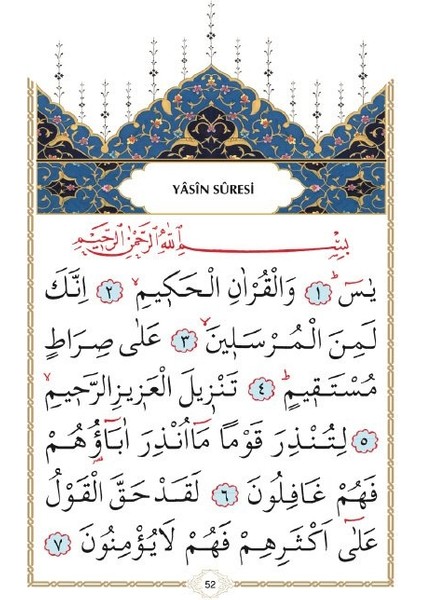 YÂSÎN SÛRESİ
بِسْمِ اللّٰهِ الرَّحْمٰنِ الرَّحٖيمِ
يٰسٓ ۚ ﴿١﴾ وَالْقُرْاٰنِ الْحَكٖيمِۙ ﴿٢﴾ اِنَّكَ
لَمِنَ الْمُرْسَلٖينَۙ ﴿٣﴾ عَلٰى صِرَاطٍ
مُسْتَقٖيمٍؕ ﴿٤﴾ تَنْزٖيلَ الْعَزٖيزِ الرَّحٖيمِۙ
﴿٥﴾ لِتُنْذِرَ قَوْمًا مَٓا اُنْذِرَ اٰبَٓاؤُ۬هُمْ
فَهُمْ غَافِلُونَ ﴿٦﴾ لَقَدْ حَقَّ الْقَوْلُ
عَلٰٓى اَكْثَرِهِمْ فَهُمْ لَا يُؤْمِنُونَ ﴿٧﴾
52